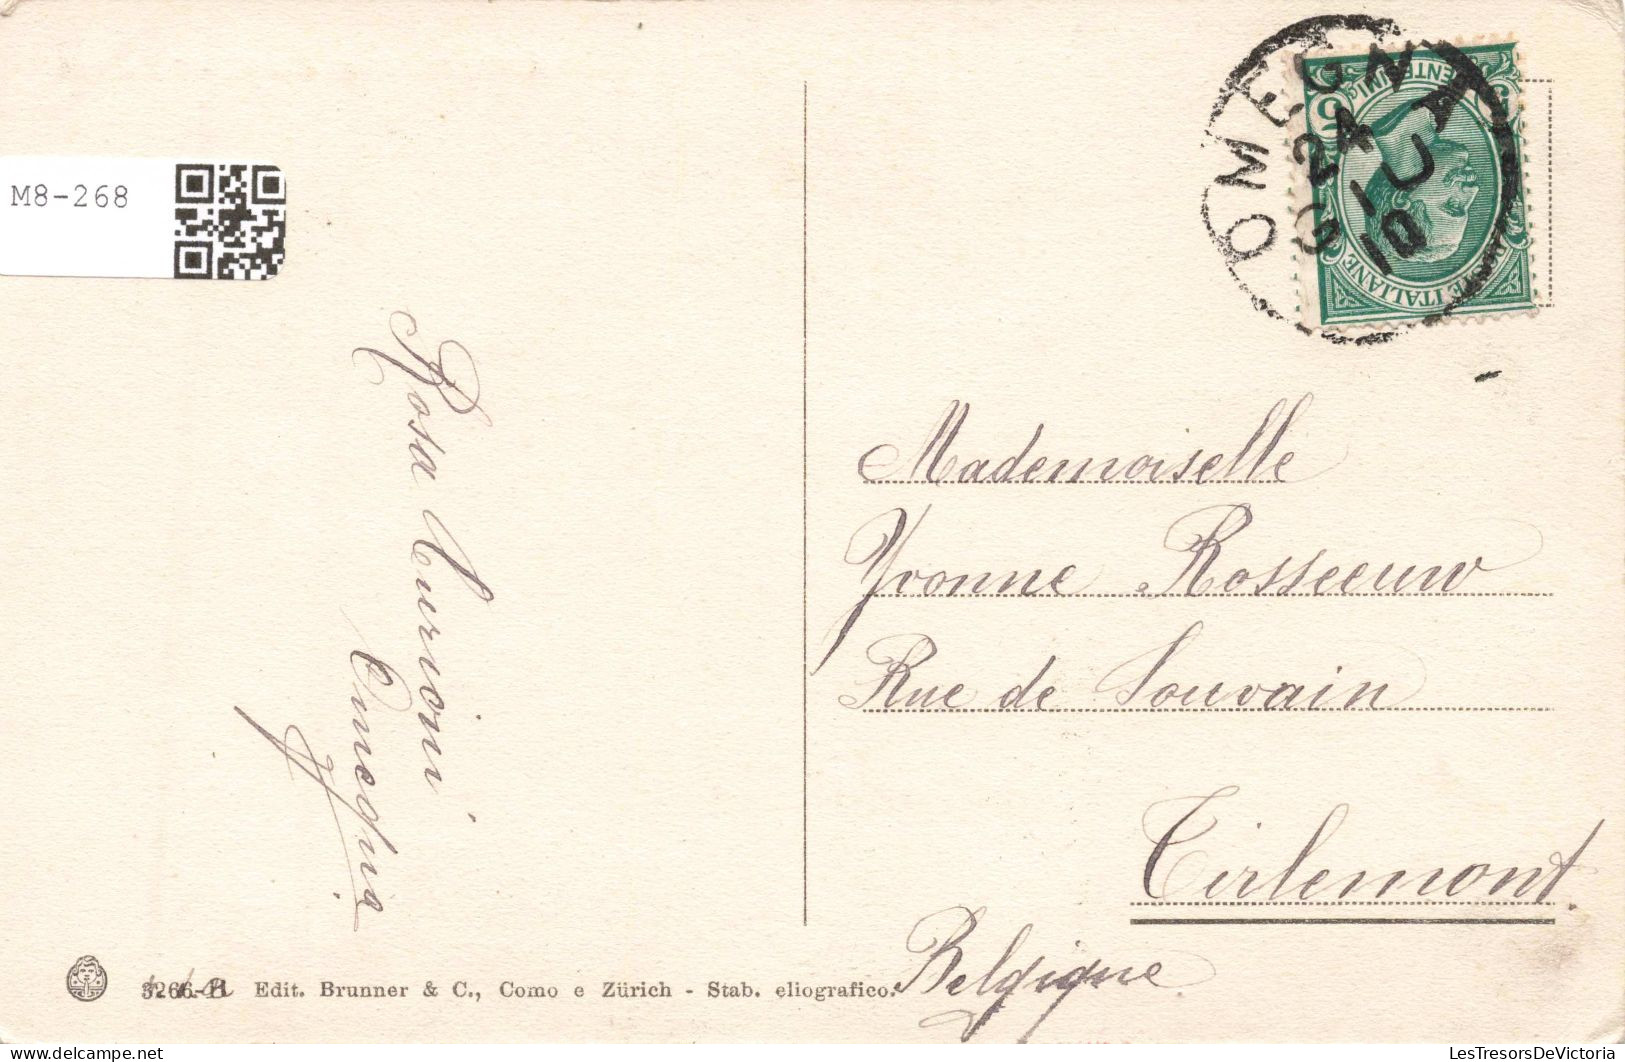 M8-268
OMEGNA
24
GIU
10
5 CENTESIMI 5
POSTE ITALIANE
Rosa
Omegna
Mademoiselle
Yvonne Rosseeuw
Rue de Louvain
Tirlemont.
Belgique
Edit. Brunner & C., Como e Zürich - Stab. eliografico.
LesTresorsDeVictoria